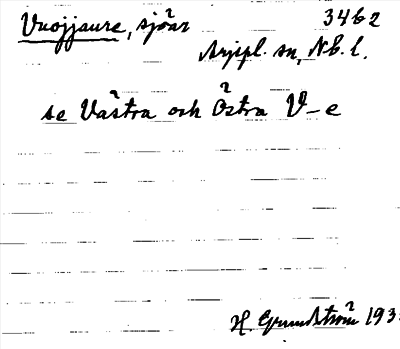 Vuojjaure, sjöar 3462
Arjepl. sn, N.b. l.
se Västra och Östra V-e
H. Grundström 193